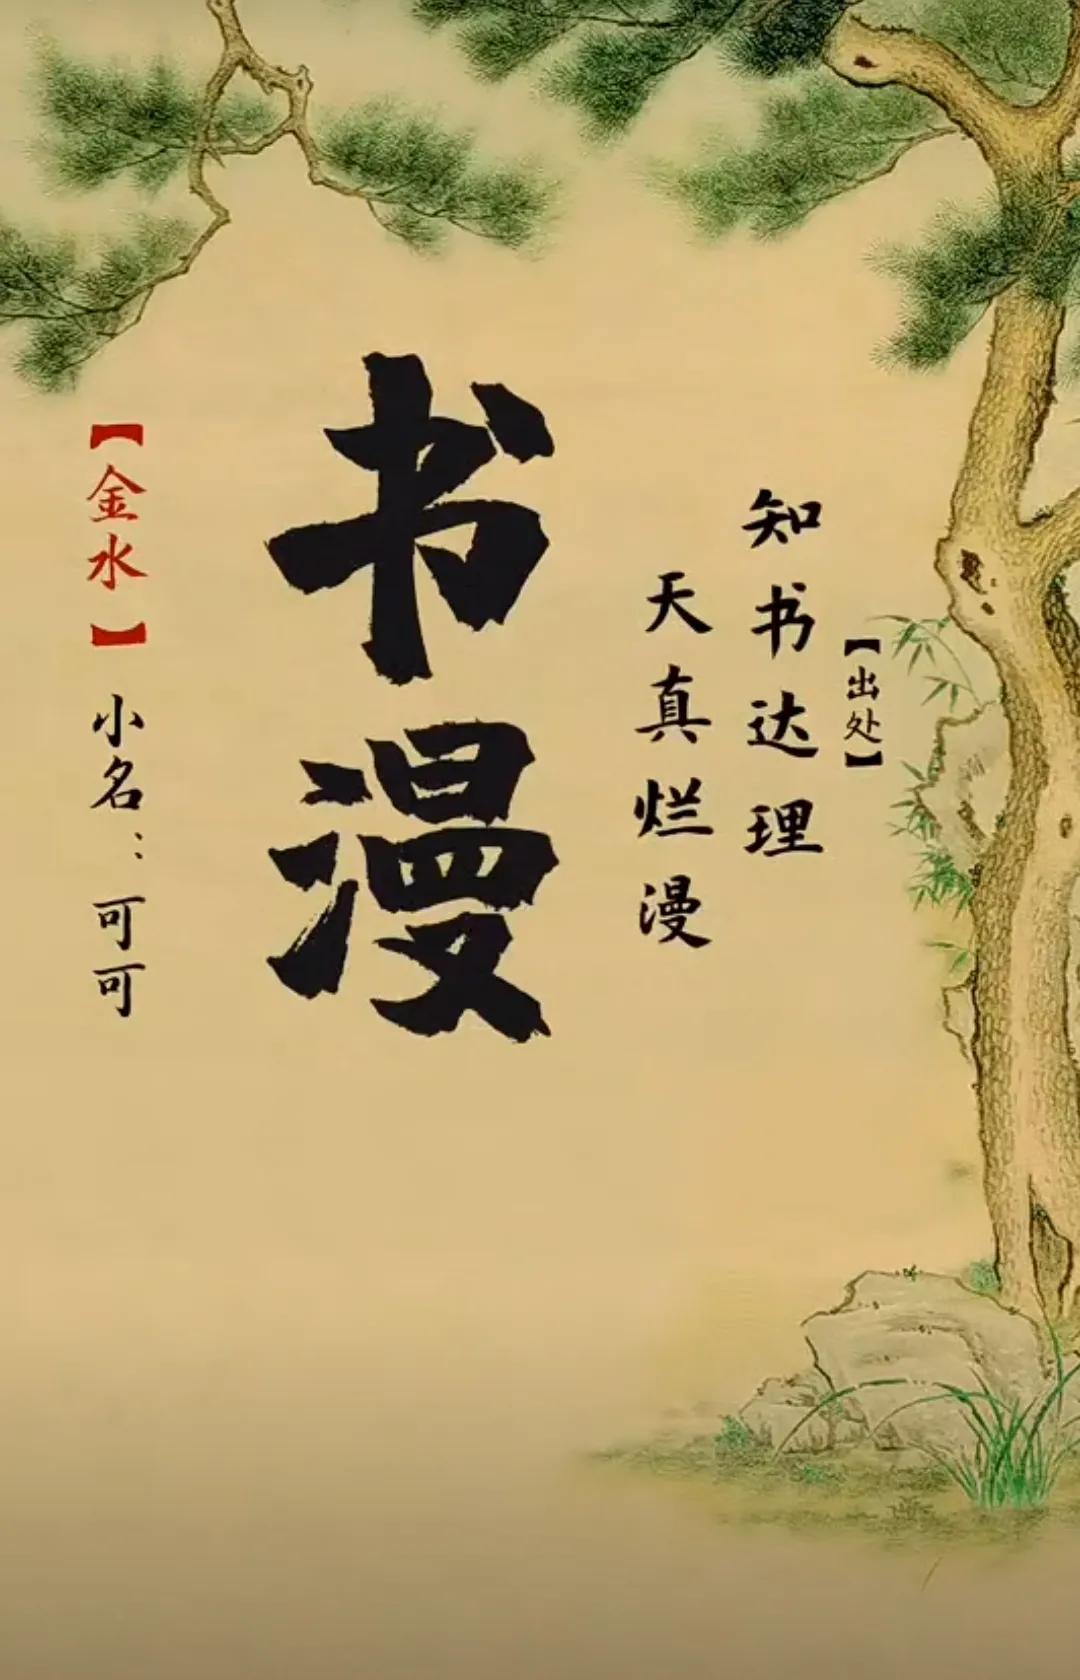 【出处】
知书达理
天真烂漫
书漫
【金水】小名：可可